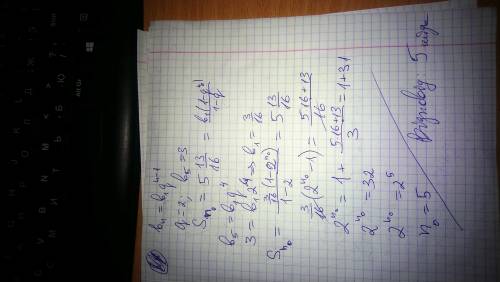 bₙ = b₁qⁿ⁻¹
q = 2, b₅ = 3
Sₙ₀ = 5 13/16 = b₁(1-qⁿ)/(1-q)
b₅ = b₁q⁴
3 = b₁2⁴ ⇒ b₁ = 3/16
Sₙ₀ = 3/16(1-2ⁿ⁰)/(1-2) = 5 13/16
3/16(2ⁿ⁰-1) = (5·16+13)/16
2ⁿ⁰ = 1 + (5·16+13)/3 = 1+31
2ⁿ⁰ = 32
2ⁿ⁰ = 2⁵
n₀ = 5
5